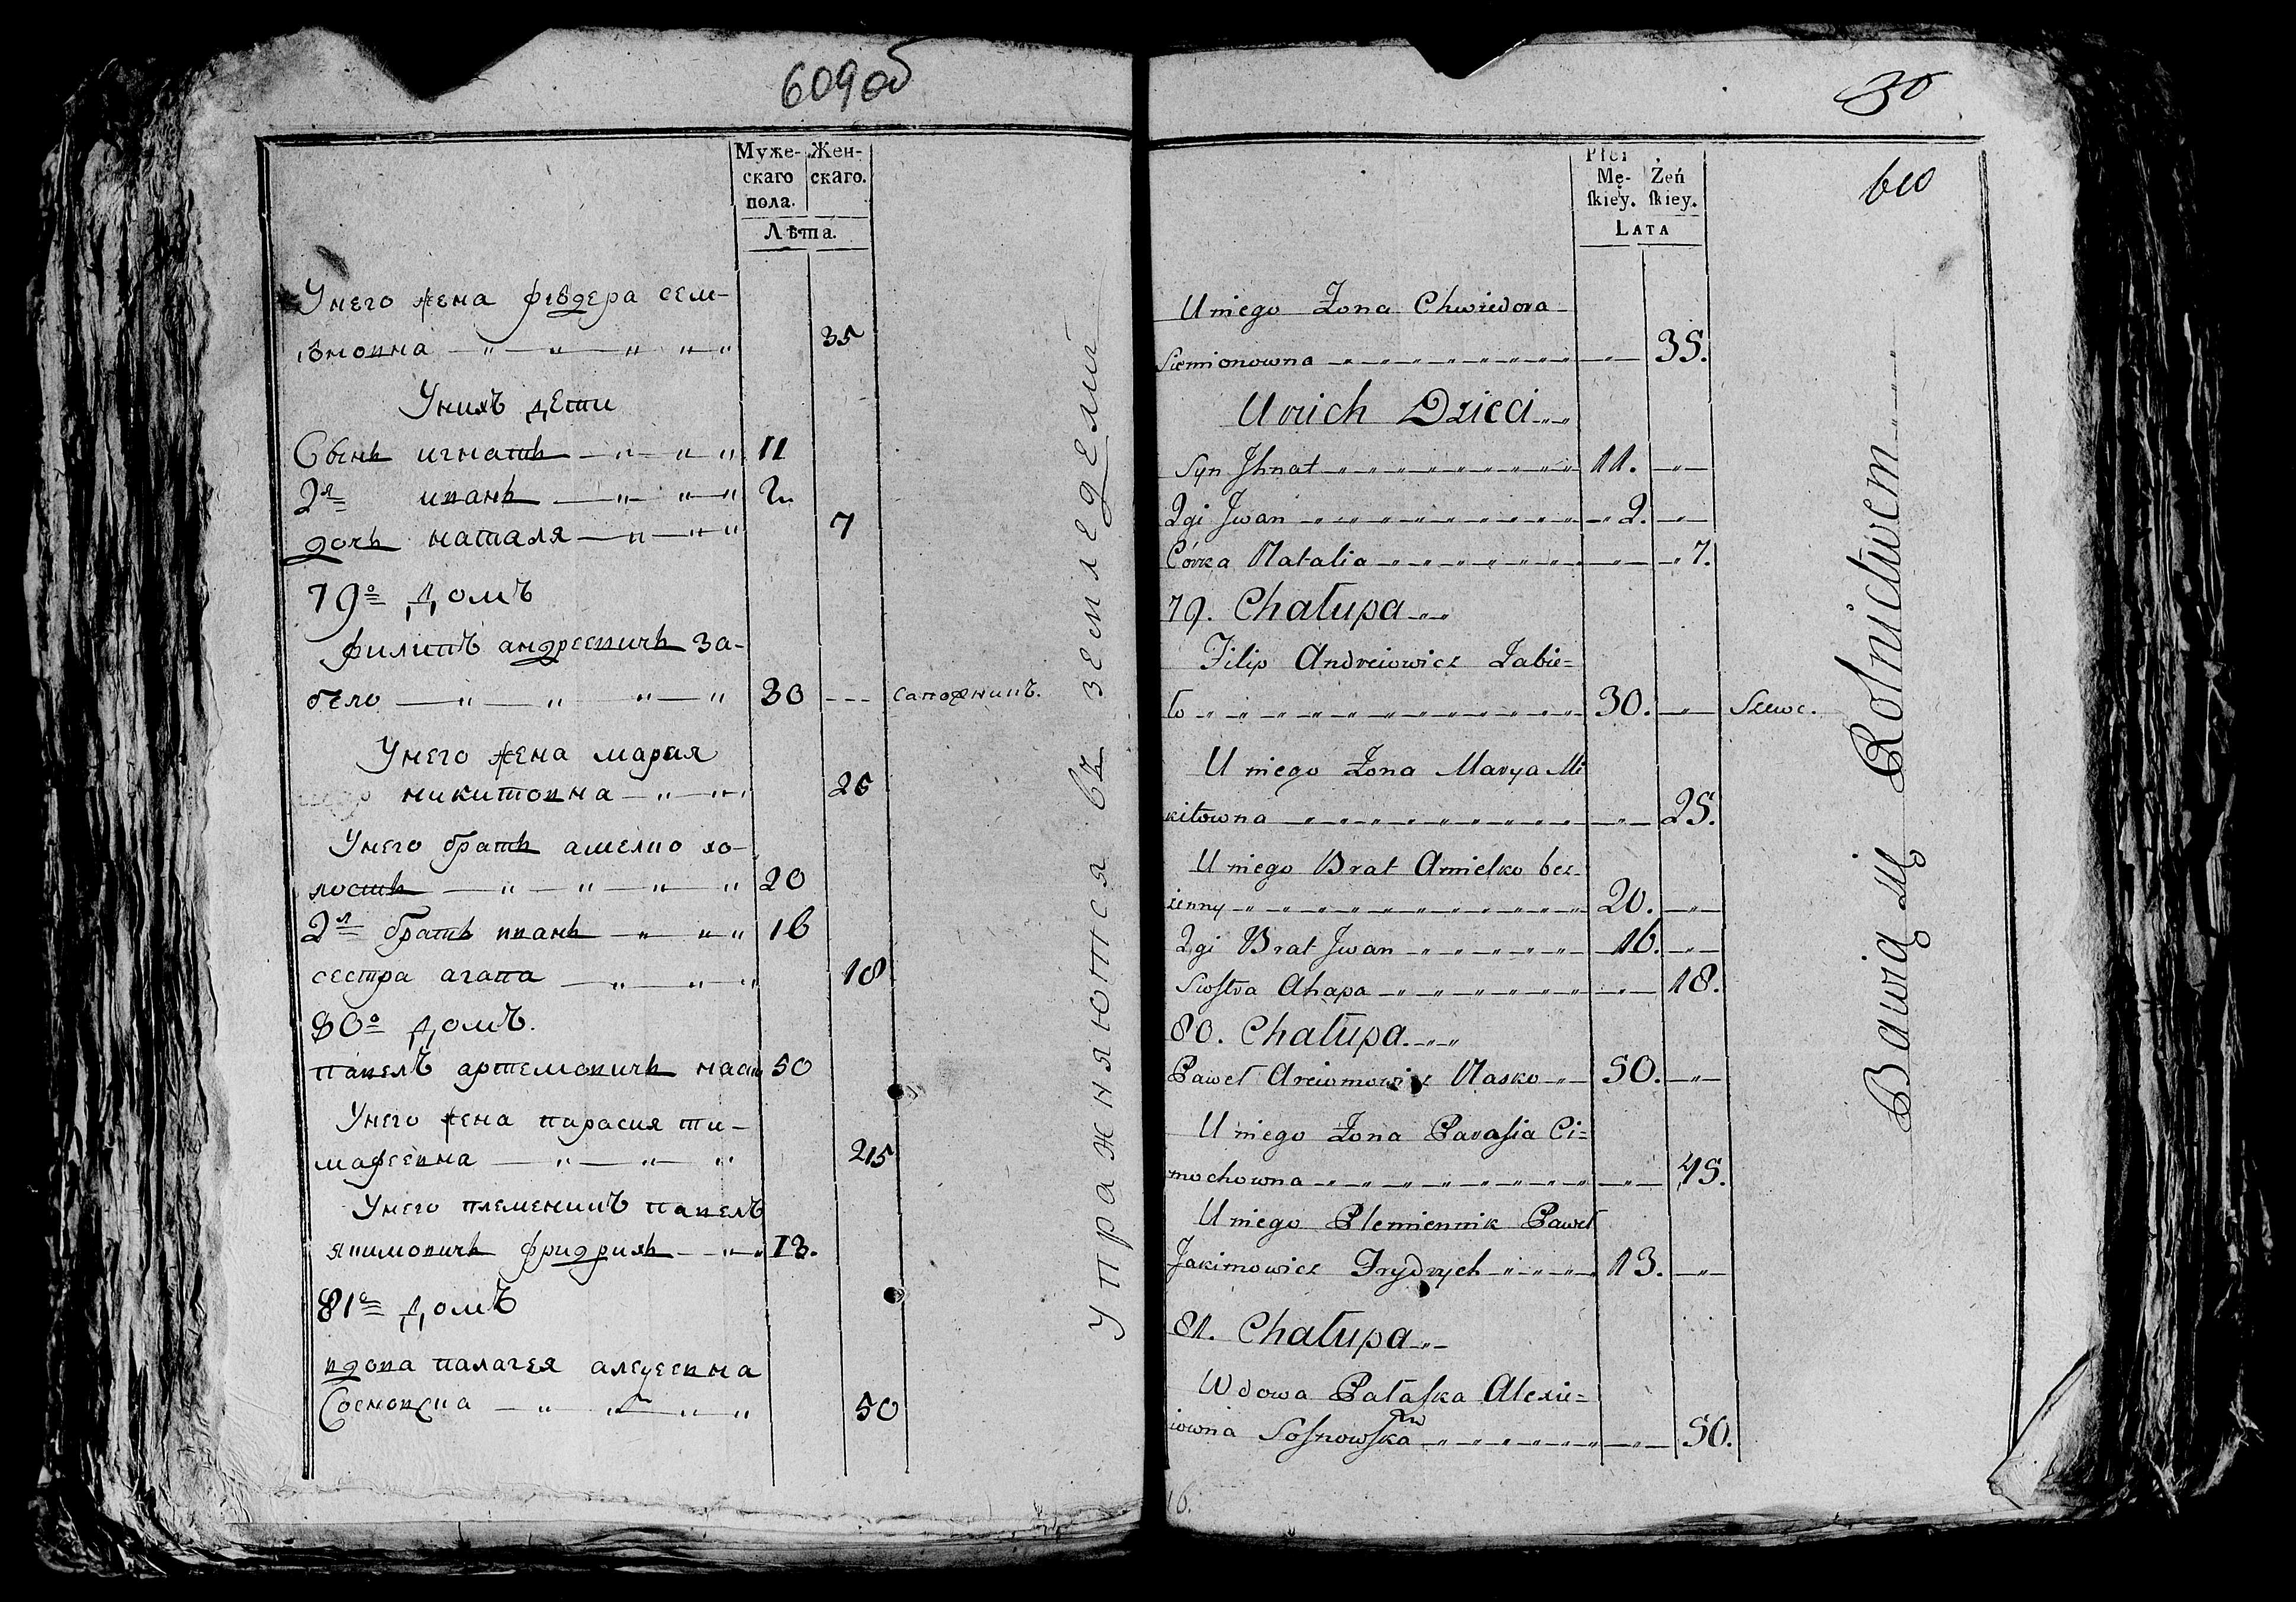 609об
Муже- Жен-
скаго скаго.
пола.
Лѣта.
Унего жена февдера сем-
ѣновна 35
Унихъ дети
Сынь игнать 11
2й ивань 2
дочь наталя 7
79о домъ
филипъ андреевичь за-
бело 30 сапожникъ.
Унего жена мария
никитовна 25
Унего брать амелко хо-
лость 20
2й брать ивань 16
сестра агапа 18
80о домъ.
павелъ артемовичь наско 50
Унего жена парасия ти-
мафеевна 45
Унего племеникъ павелъ
якимовичь фридрихь 13.
81о домъ
вдова палагея алецеевна
Сосновска 50
Упражняются въ земледелии
30
610
Płci
Mę- Żeń
ſkiey. ſkiey.
LATA
U niego Żona Chwiedora
Siemionowna 35.
U nich Dzieci
Syn Jhnat 11.
2gi Jwan 2.
Córka Natalia 7.
79. Chałupa
Filip Andreiowicz Zabie=
ło 30. Szewc.
U niego Żona Marya Mi
kitowna 25.
U niego Brat Amielko bez-
żenny 20.
2gi Brat Jwan 16.
Siostra Ahapa 18.
80. Chałupa.
Paweł Arciomowicz Nasko 50.
U niego Żona Parasia Ci=
mochowna 45.
U niego Plemiennik Paweł
Jakimowicz Frydrych 13.
81. Chałupa
Wdowa Pałaſka Alexie=
iowna Soſnowſka 50.
Bawią się Rolnictwem
16.